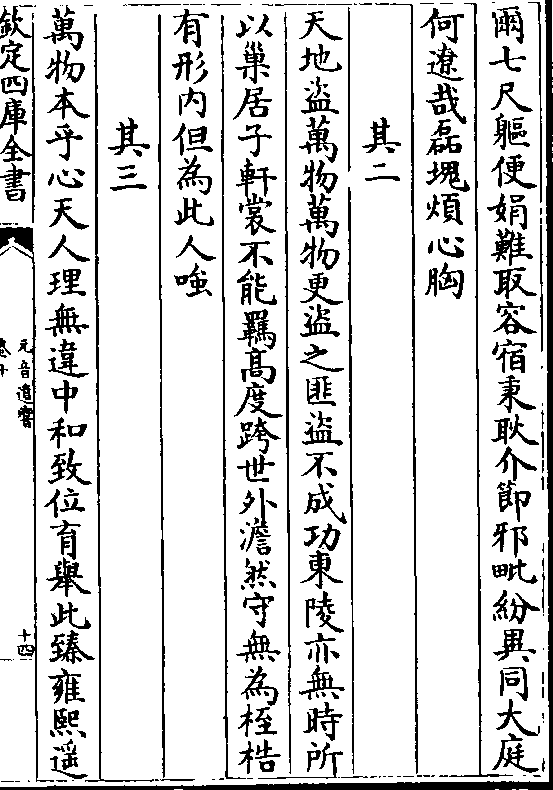 爾七尺軀便娟難取容宿秉耿介節邪毗紛異同大庭
何遼哉磊塊煩心胸
其二
天地盜萬物萬物更盜之匪盜不成功東陵亦無時所
以巢居子軒裳不能羈高度跨世外澹然守無為桎梏
有形内但為此人嗤
其三
萬物本乎心天人理無違中和致位育舉此臻雍熙遥
欽定四庫全書
元音遺響
卷十
十四